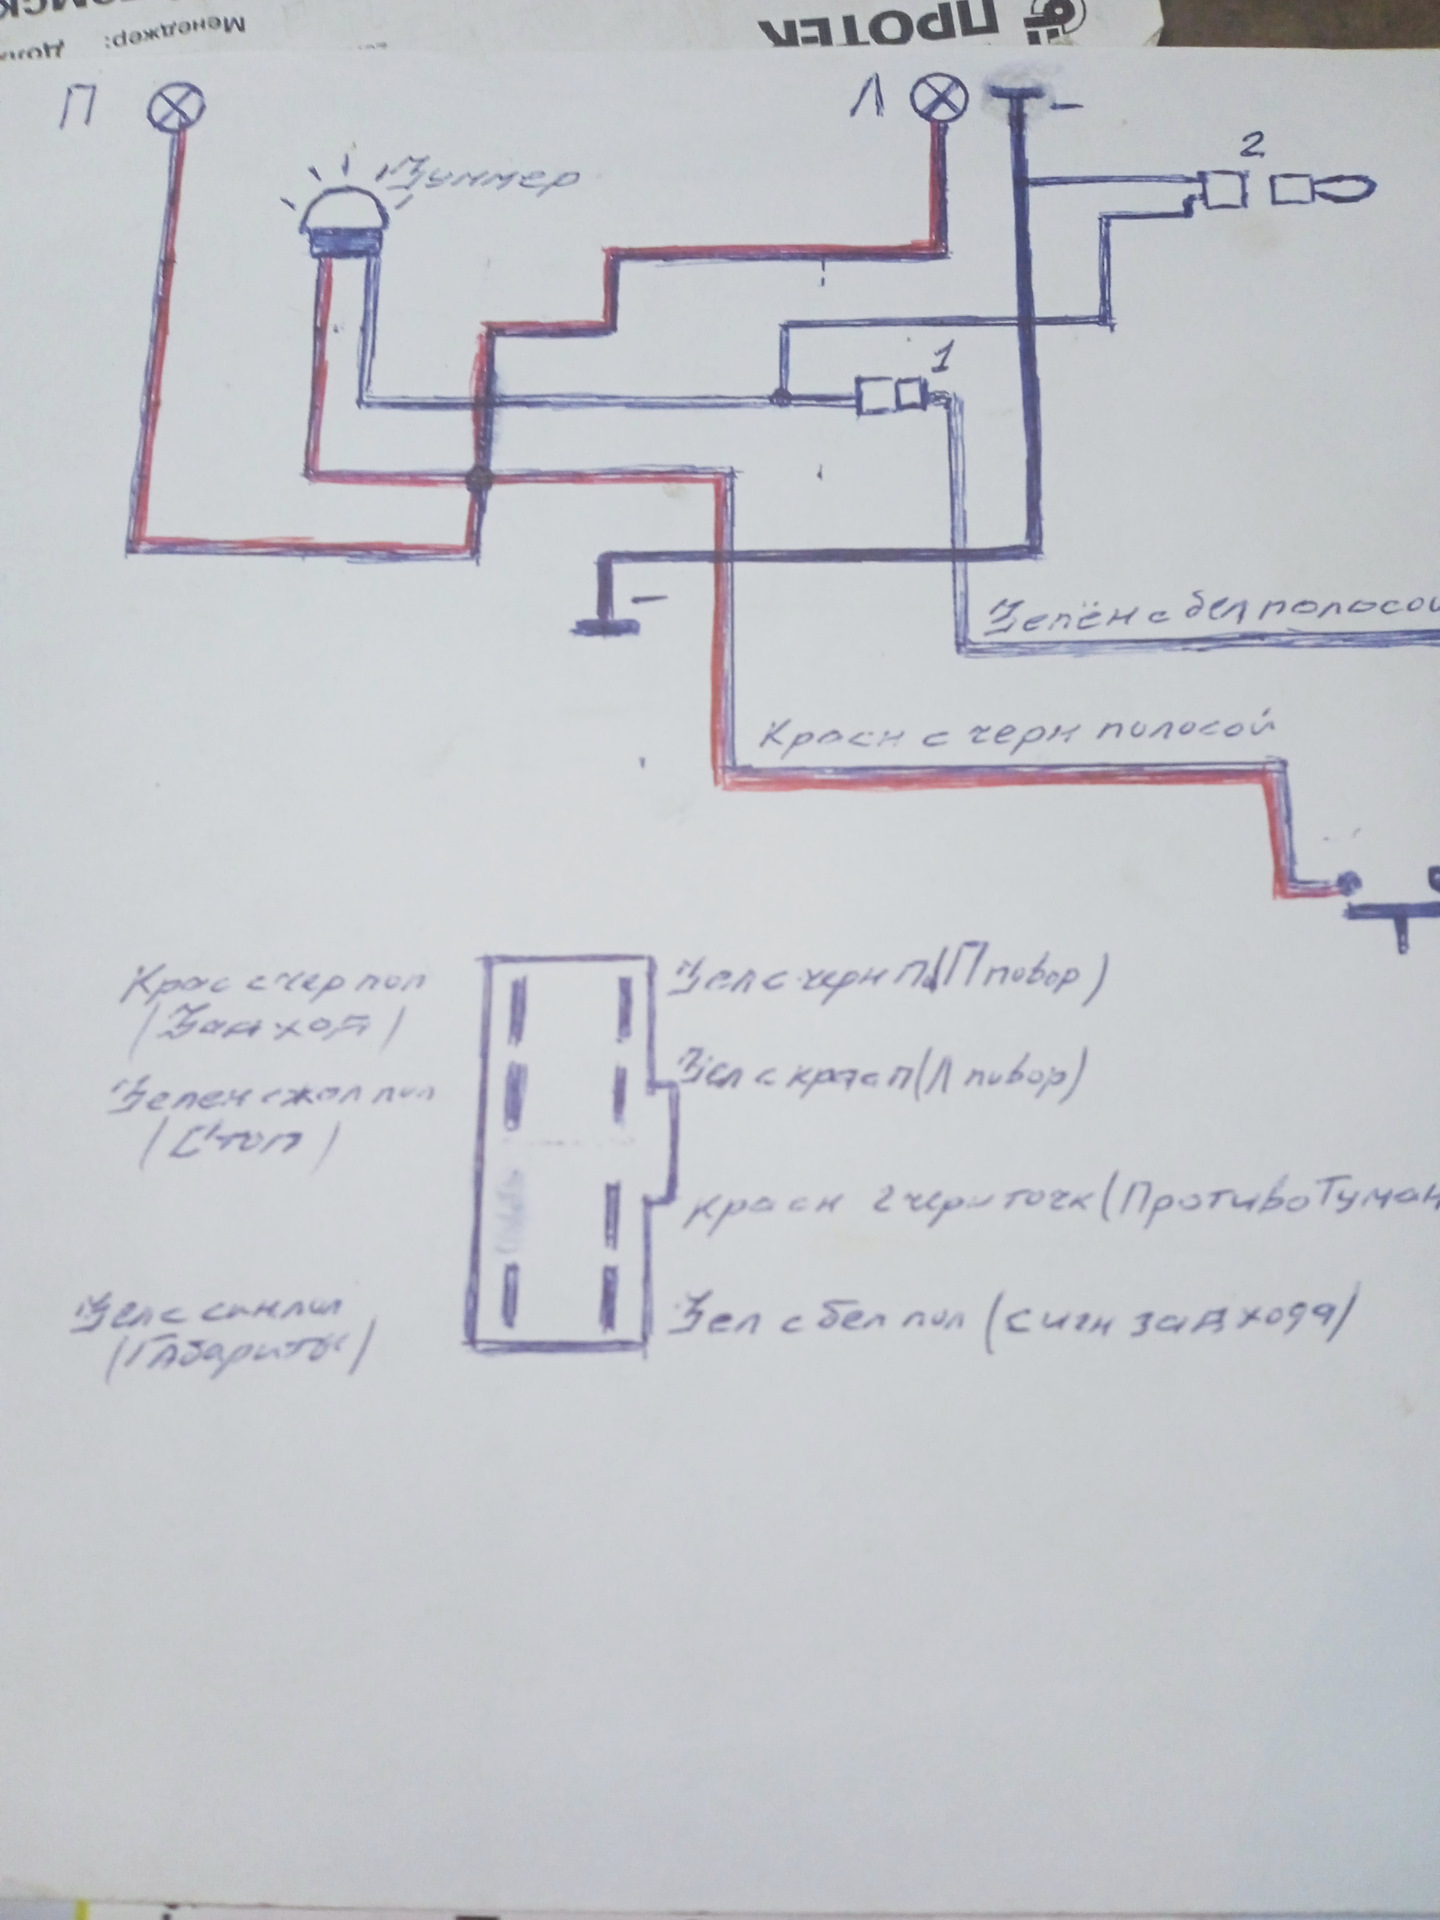 ПРОТЕК
Менеджер:
П
Л
-
2
Зуммер
1
-
Зелён с бел полосой
Красн с черн полосой
Крас с чер пол
(Зад ход)
Зел с черн п. (П повор)
Зелен с жел пол
(Стоп)
Зел с крас п (Л повор)
красн с черн точк (ПротивоТуман
Зел с син пол
(Габариты)
Зел с бел пол (сигн зад хода)